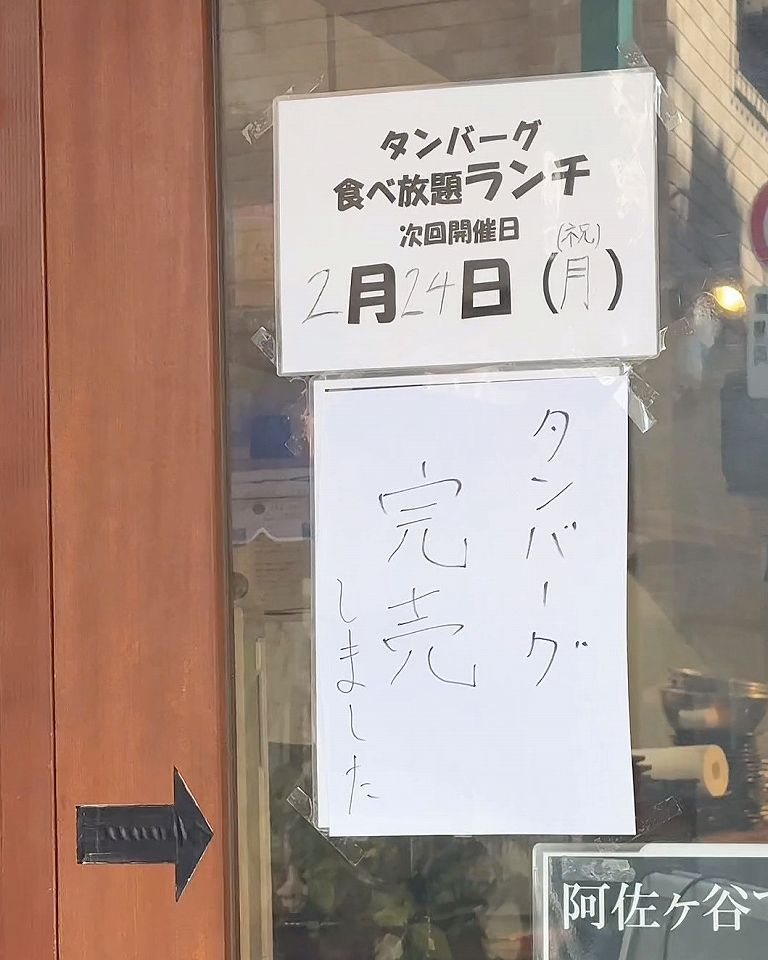 タンバーグ
食べ放題ランチ
次回開催日
(祝)
2月24日(月)
タンバーグ
完売
しました
阿佐ヶ谷